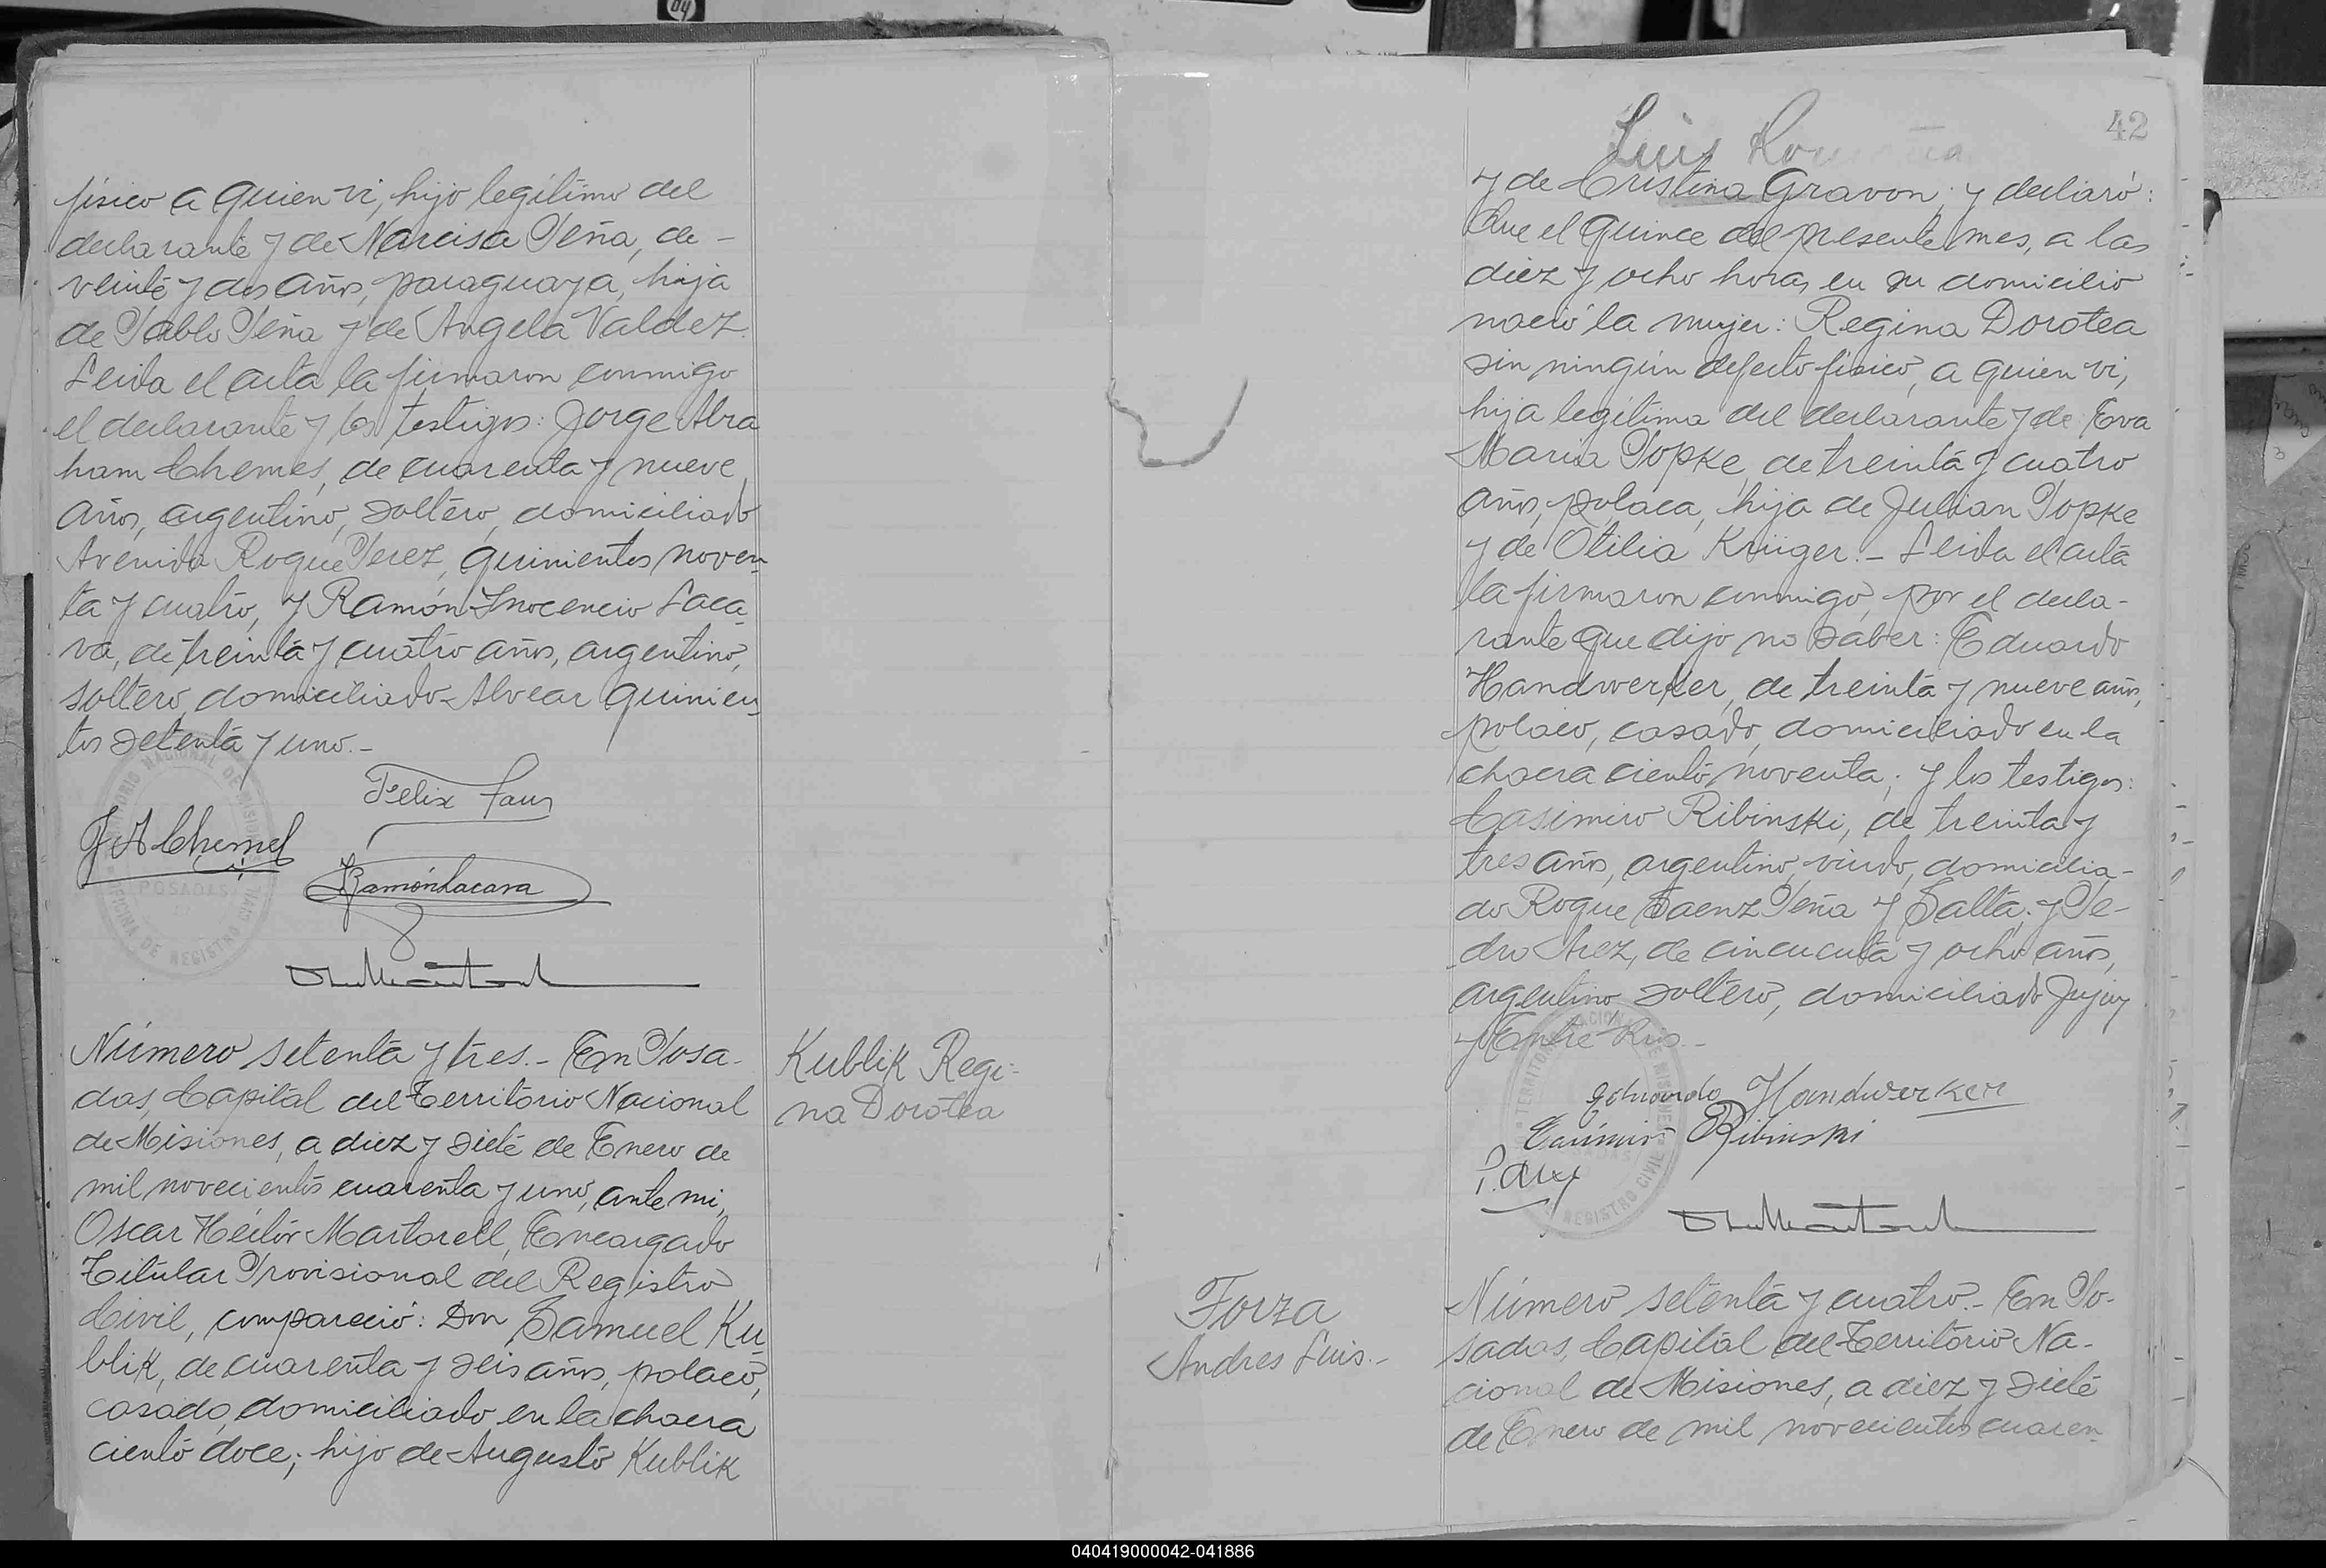 físico a quien vi, hijo legítimo del
declarante y de Narcisa Peña, de -
veinte y dos años, paraguaya, hija
de Pablo Peña y de Angela Valdez.
Leida el acta la firmaron conmigo
el declarante y los testigos: Jorge Abra
ham Chemes, de cuarenta y nueve
años, argentino, soltero, domiciliado
Avenida Roque Perez, quinientos noven-
ta y cuatro, y Ramón Inocencio Laca-
va, de treinta y cuatro años, argentino,
soltero, domiciliado Alvear quinien-
tos setenta y uno.-
Felix
J A Chemes
Ramón Lacava
TERRITORIO NACIONAL DE MISIONES
POSADAS
OFICINA DE REGISTRO CIVIL
Número setenta y tres.- En Posa-
das, Capital del Territorio Nacional
de Misiones, a diez y siete de Enero de
mil novecientos cuarenta y uno, ante mi,
Oscar Héctor Martorell, Encargado
Titular Provisional del Registro
Civil, compareció: Don Samuel Ku-
blik, de cuarenta y seis años, polaco,
casado, domiciliado en la chacra
ciento doce; hijo de Augusto Kublik
Kublik Regi-
na Dorotea
42
Luis
y de Cristina Gravon; y declaró:
Que el quince del presente mes, a las
diez y ocho horas, en su domicilio
nació la mujer: Regina Dorotea
sin ningún defecto físico, a quien vi,
hija legítima del declarante y de Eva
Maria Popke, de treinta y cuatro
años, polaca, hija de Julian Popke
y de Otilia Krüger.- Leida el acta
la firmaron conmigo, por el decla-
rante que dijo no saber: Eduardo
Handwerker, de treinta y nueve años,
polaco, casado, domiciliado en la
chacra ciento noventa; y los testigos:
Casimiro Ribinski, de treinta y
tres años, argentino, viudo, domicilia-
do Roque Saenz Peña y Salta; y Pe-
dro Arez, de cincuenta y ocho años,
argentino, soltero, domiciliado Jujuy
y Entre Rios.-
Eduardo Handwerker
Casimiro Ribinski
REGISTRO CIVIL
Forza
Andres Luis.-
Número setenta y cuatro.- En Po-
sadas, Capital del Territorio Na-
cional de Misiones, a diez y siete
de Enero de mil novecientos cuaren-
040419000042-041886